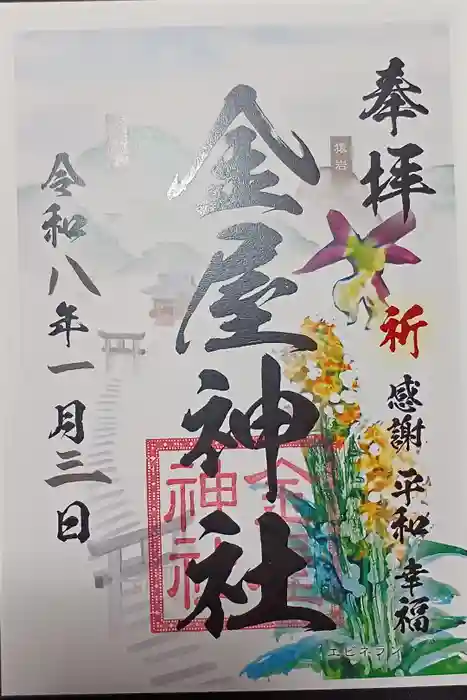 奉拝
祈 感謝 平和 幸福
猿岩
金屋神社
金屋
神社
令和八年一月三日
エビネラン